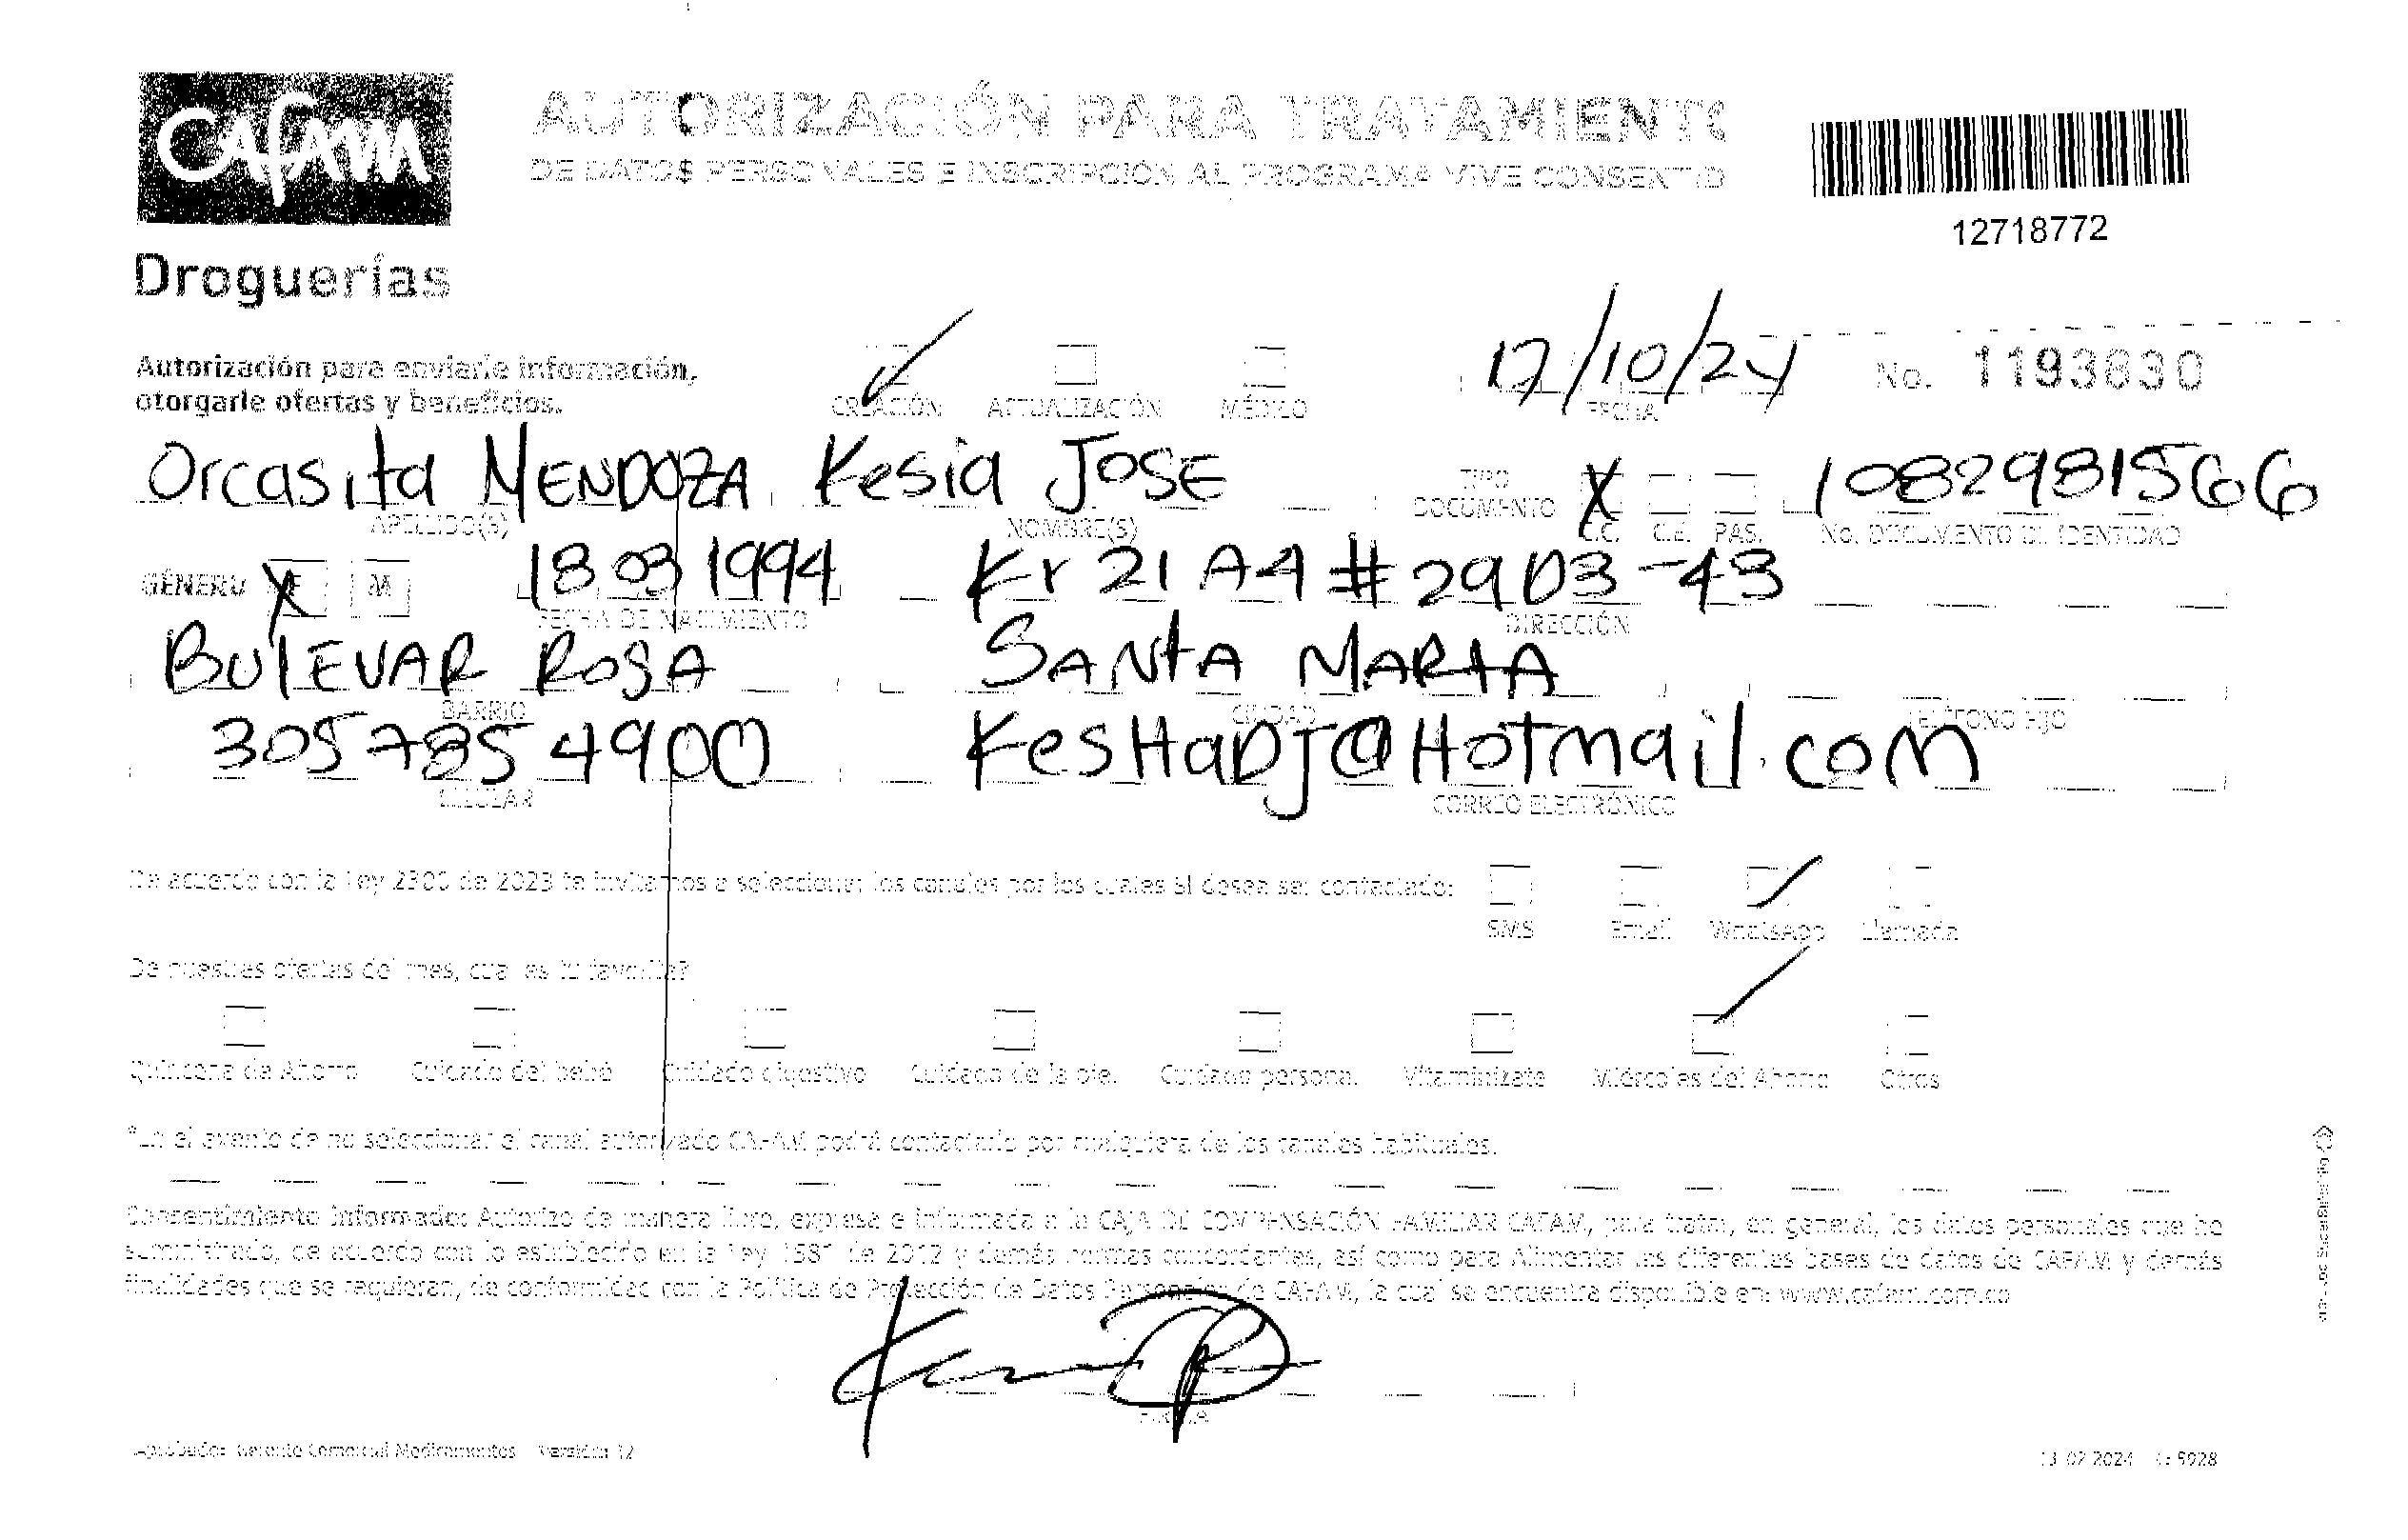 CAFAM
Droguerías
AUTORIZACIÓN PARA TRATAMIENTO
DE DATOS PERSONALES E INSCRIPCIÓN AL PROGRAMA VIVE CONSENTID
12718772
Autorización para enviarle información,
otorgarle ofertas y beneficios.
CREACIÓN ACTUALIZACIÓN MÉDICO
17/10/24
FECHA
No. 1193630
Orcasita MENDOZA Kesia JOSE
APELLIDO(S) NOMBRE(S)
TIPO DOCUMENTO X C.C. C.E. PAS.
1082981566
No. DOCUMENTO DE IDENTIDAD
GÉNERO X F M
18 03 1994 Kr 21 A4 # 29D3-43
FECHA DE NACIMIENTO DIRECCIÓN
BULEVAR ROSA SANTA MARTA
BARRIO CIUDAD TELÉFONO FIJO
305 785 4900 KesHaDJ@HoTmail.com
CELULAR CORREO ELECTRÓNICO
De acuerdo con la Ley 2300 de 2023 te invitamos a seleccionar los canales por los cuales si desea ser contactado:
SMS Email WhatsApp Llamada
De nuestras ofertas del mes, cual es tu favorita?
Quincena de Ahorro Cuidado del bebé Cuidado digestivo Cuidado de la piel Cuidado personal Vitaminízate Miércoles del Ahorro Otros
*En el evento de no seleccionar el canal autorizado CAFAM podrá contactarlo por cualquiera de los canales habituales.
Consentimiento Informado: Autorizo de manera libre, expresa e informada a la CAJA DE COMPENSACIÓN FAMILIAR CAFAM, para tratar, en general, los datos personales que he
suministrado, de acuerdo con lo establecido en la Ley 1581 de 2012 y demás normas concordantes, así como para Alimentar las diferentes bases de datos de CAFAM y demás
finalidades que se requieran, de conformidad con la Política de Protección de Datos Personales de CAFAM, la cual se encuentra disponible en: www.cafam.com.co
FIRMA
Aprobado: Gerente Comercial Medicamentos Versión 12
13 02 2024 5928